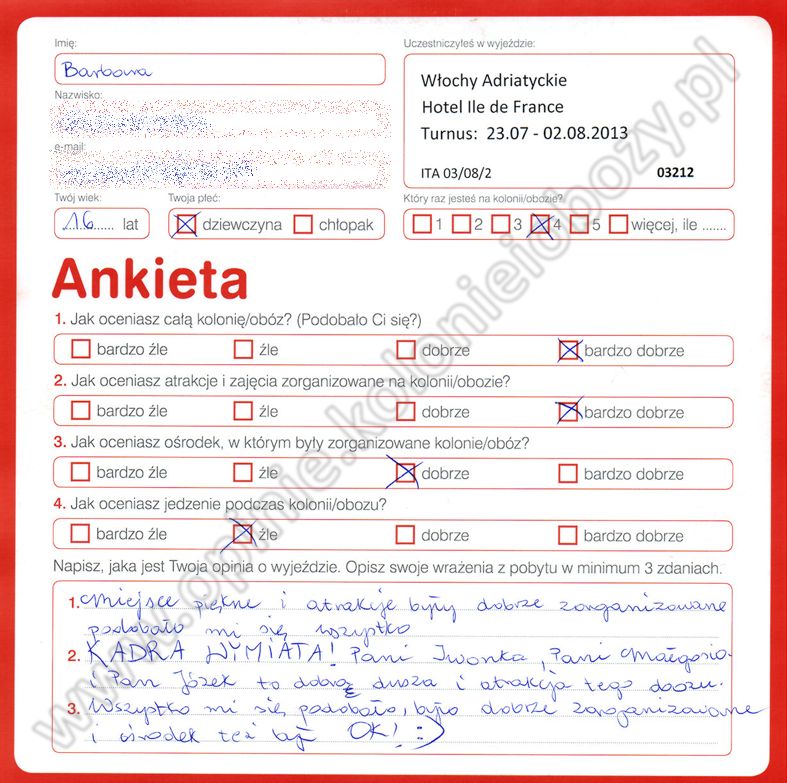 Imię:
Barbara
Uczestniczyłeś w wyjeździe:
Włochy Adriatyckie
Hotel Ile de France
Turnus: 23.07 - 02.08.2013
ITA 03/08/2 03212
Nazwisko:
e-mail:
Twój wiek: Twoja płeć: Który raz jesteś na kolonii/obozie?
16 lat dziewczyna chłopak 1 2 3 4 5 więcej, ile .......
Ankieta
1. Jak oceniasz całą kolonię/obóz? (Podobało Ci się?)
bardzo źle źle dobrze bardzo dobrze
2. Jak oceniasz atrakcje i zajęcia zorganizowane na kolonii/obozie?
bardzo źle źle dobrze bardzo dobrze
3. Jak oceniasz ośrodek, w którym były zorganizowane kolonie/obóz?
bardzo źle źle dobrze bardzo dobrze
4. Jak oceniasz jedzenie podczas kolonii/obozu?
bardzo źle źle dobrze bardzo dobrze
Napisz, jaka jest Twoja opinia o wyjeździe. Opisz swoje wrażenia z pobytu w minimum 3 zdaniach.
1. Miejsce piękne i atrakcje były dobrze zorganizowane
podobało mi się wszystko
2. KADRA WYMIATA! Pani Iwonka, Pani Małgosia
i Pan Józek to dobra dusza i atrakcja tego obozu.
3. Wszystko mi się podobało, było dobrze zorganizowane
i ośrodek też był OK! :)
www.opinie.kolonieiobozy.pl